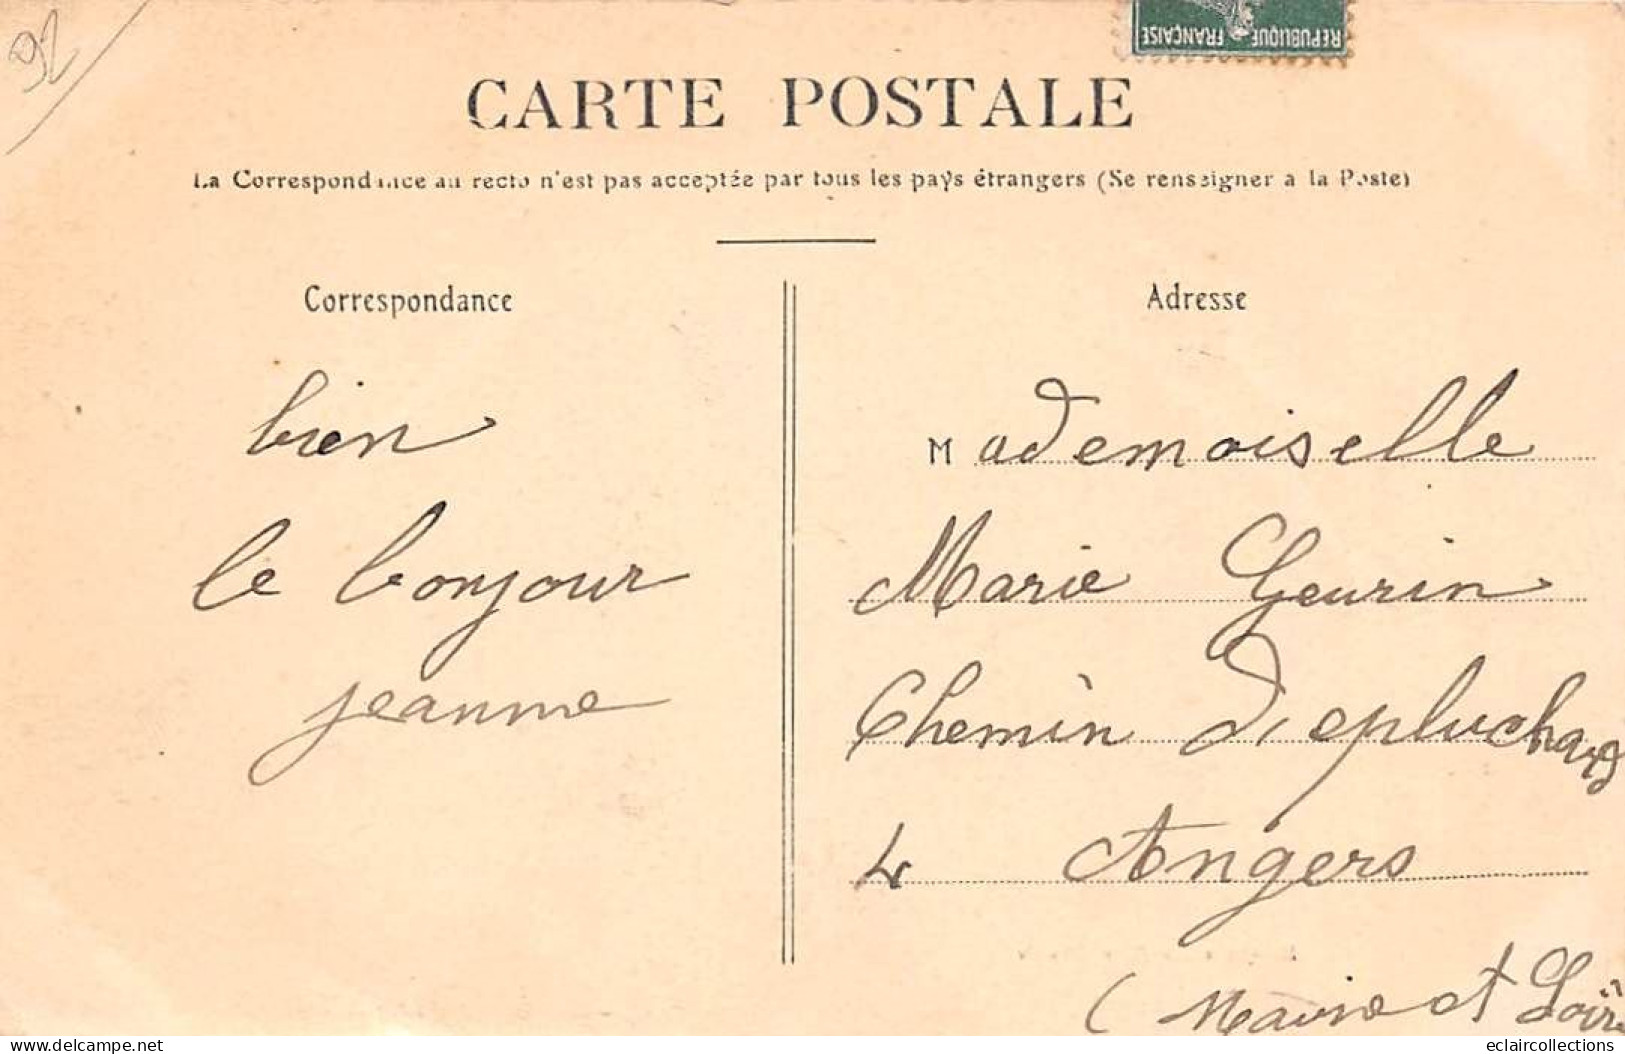 92
RÉPUBLIQUE FRANÇAISE
CARTE POSTALE
La Correspondance au recto n'est pas acceptée par tous les pays étrangers (Se renseigner a la Poste)
Correspondance
bien
le bonjour
jeanne
Adresse
Mademoiselle
Marie Geurin
Chemin d'epluchard
4 Angers
(Maine et Loire
delcampe.net
eclaircollections